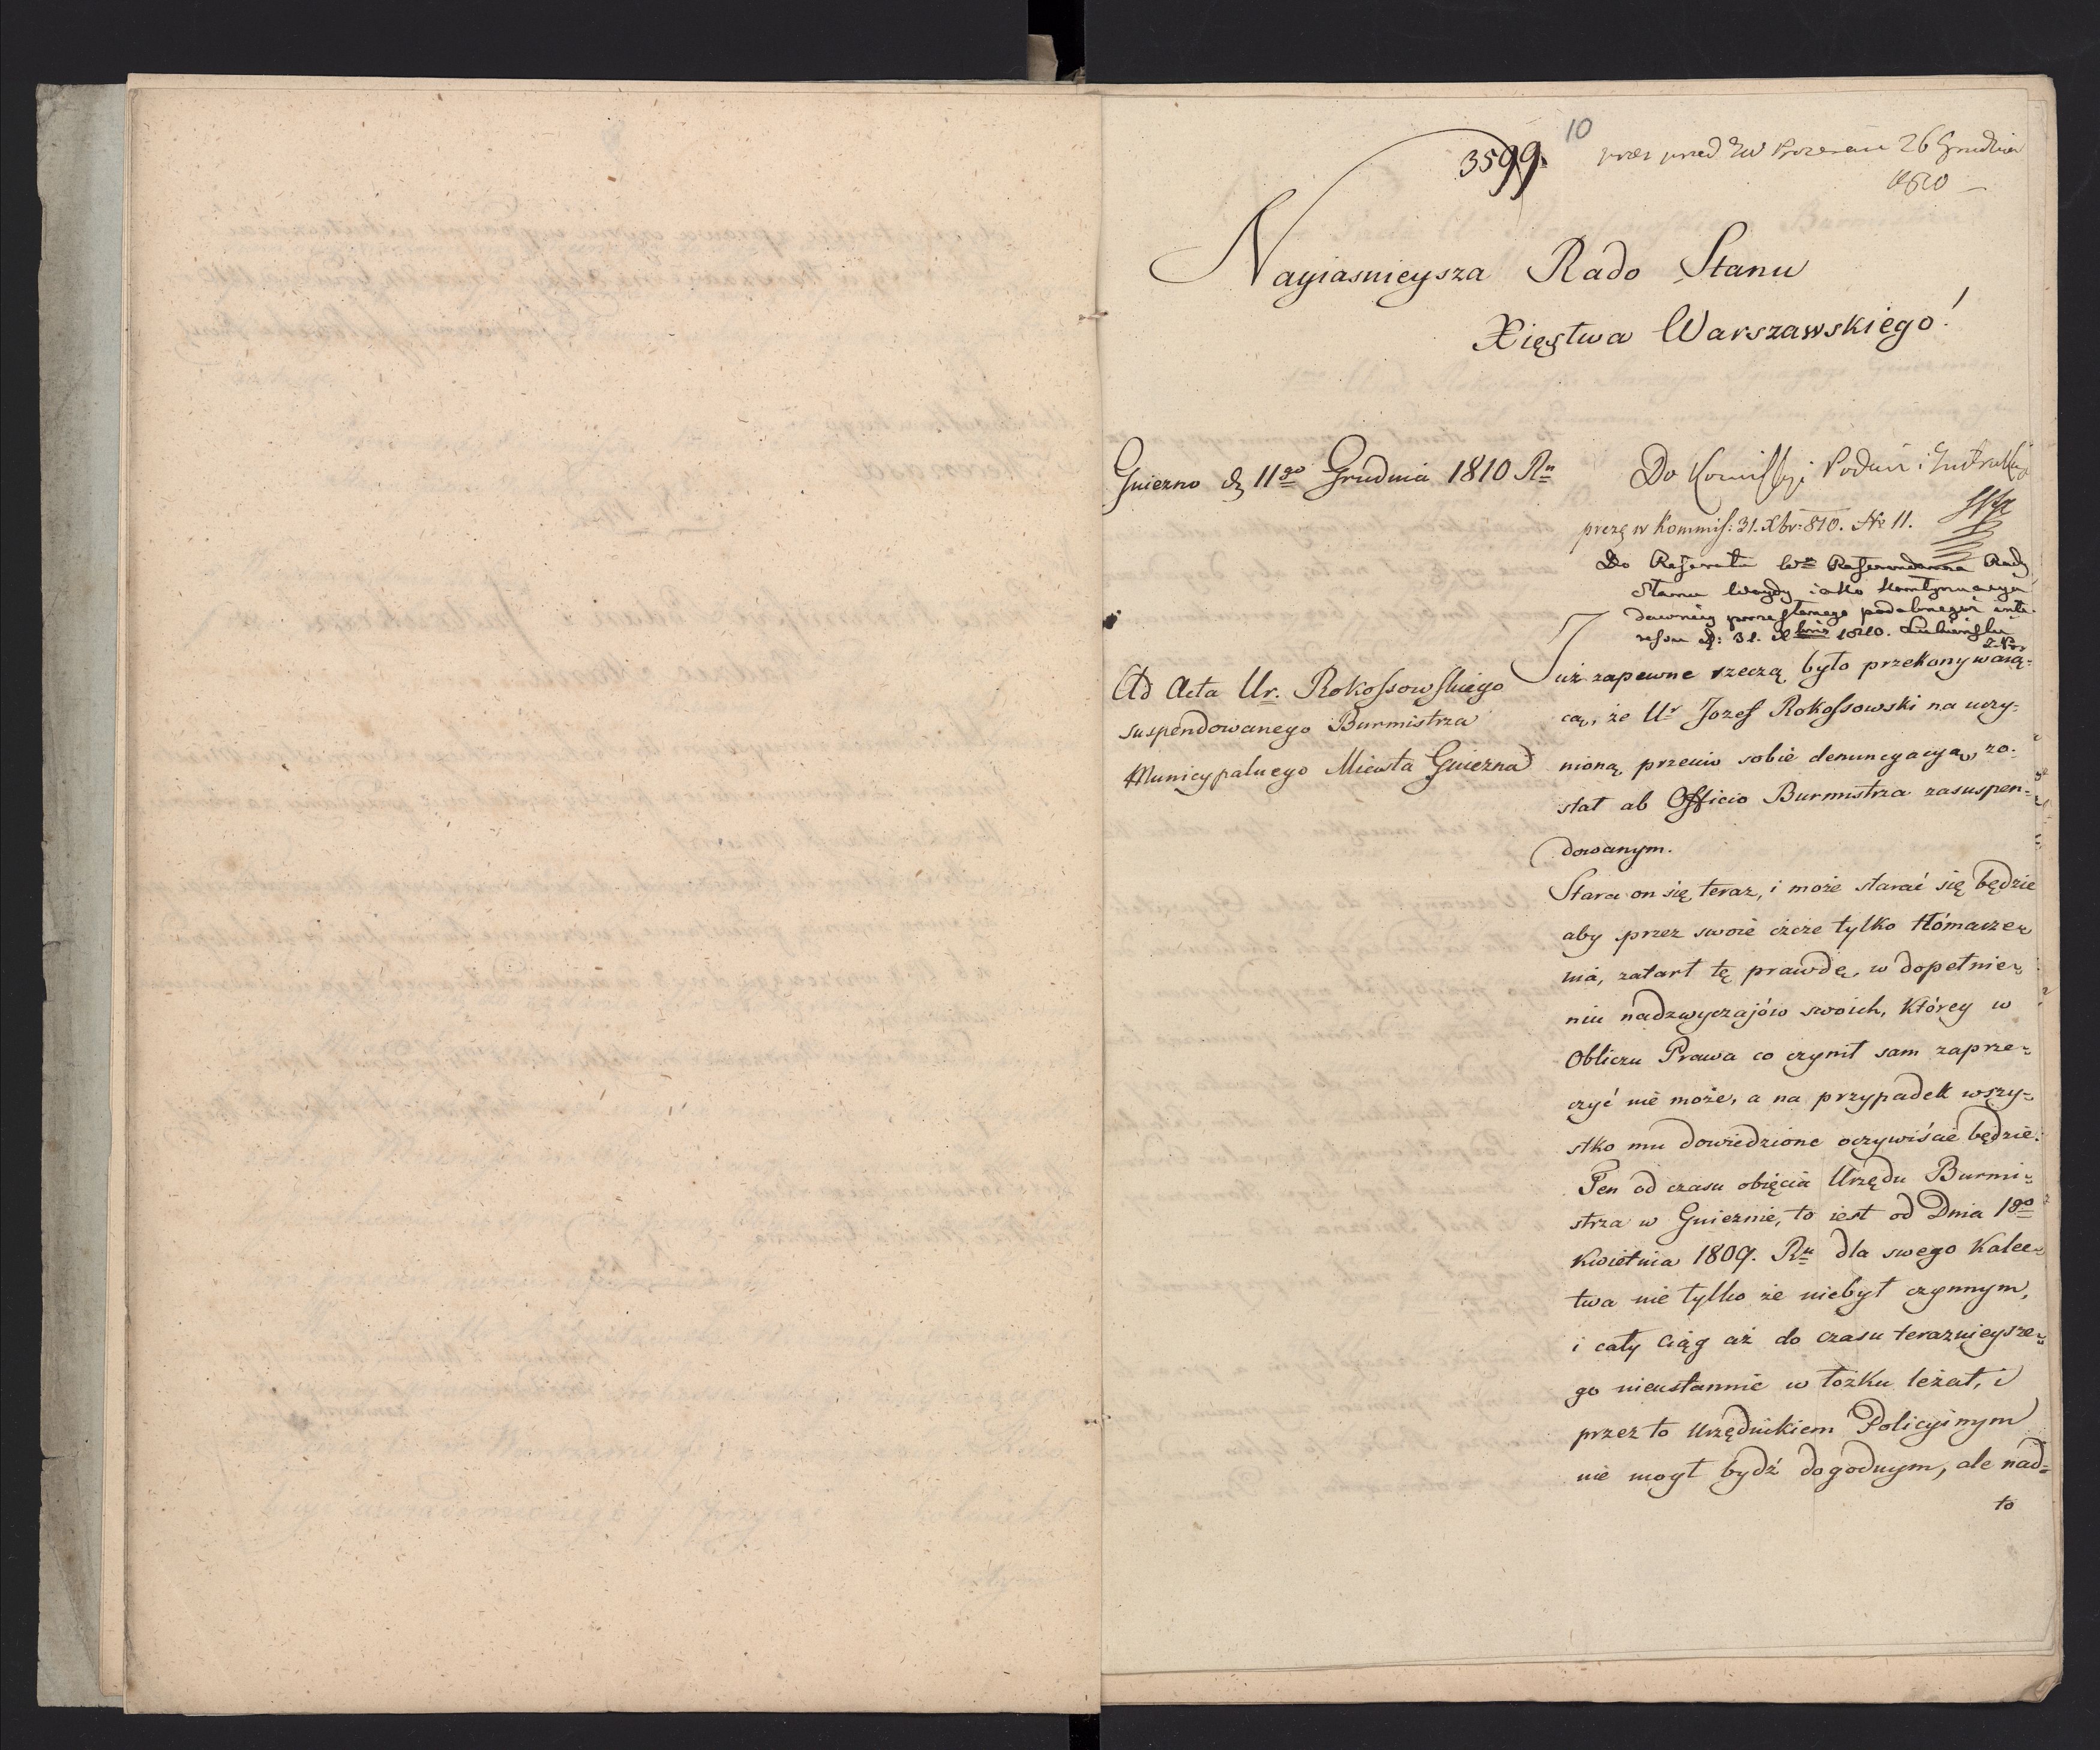 10
3599.
26 Grudnia
1810
Nayiasnieysza Rado Stanu
Xięstwa Warszawskiego!
Gniezno d. 11go Grudnia 1810 Ru
Do Kommissyi Podań i Instrukcyi
prez. w Kommis: 31. Xbr: 810. No 11.
Do Referatu Wo Referendarza Rady
Stanu Woydy iako kontynuacya
dawniey przesłanego podobnegoż inte-
ressu d: 31. Xbris 1810. Lubieński
Ad Acta Ur. Rokossowskiego
suspendowanego Burmistrza
Municypalnego Miasta Gniezna
Już zapewne rzeczą było przekonywaią-
cą, że Ur Jozef Rokossowski na uczy-
nioną przeciw sobie denuncyacyą, zo-
stał ab Officio Burmistrza zasuspen-
dowanym.
Stara on się teraz, i może starać się będzie
aby przez swoie czcze tylko tłómacze-
nia, zatarł tę prawdę, w dopełnie-
niu nadzwyczajów swoich, którey w
Obliczu Prawa co czynił sam zaprze-
czyć nie może, a na przypadek wszy-
stko mu dowiedzione oczywiście będzie.
Ten od czasu obięcia Urzędu Burmi-
strza w Gnieznie, to iest od Dnia 1go
Kwietnia 1809. Ru dla swego kalec-
twa nie tylko że niebył czynnym,
i cały ciąg aż do czasu teraznieysze-
go nieustannie w łożku leżał, i
przez to Urzędnikiem Policyinym
nie mogł bydź dogodnym, ale nad-
to